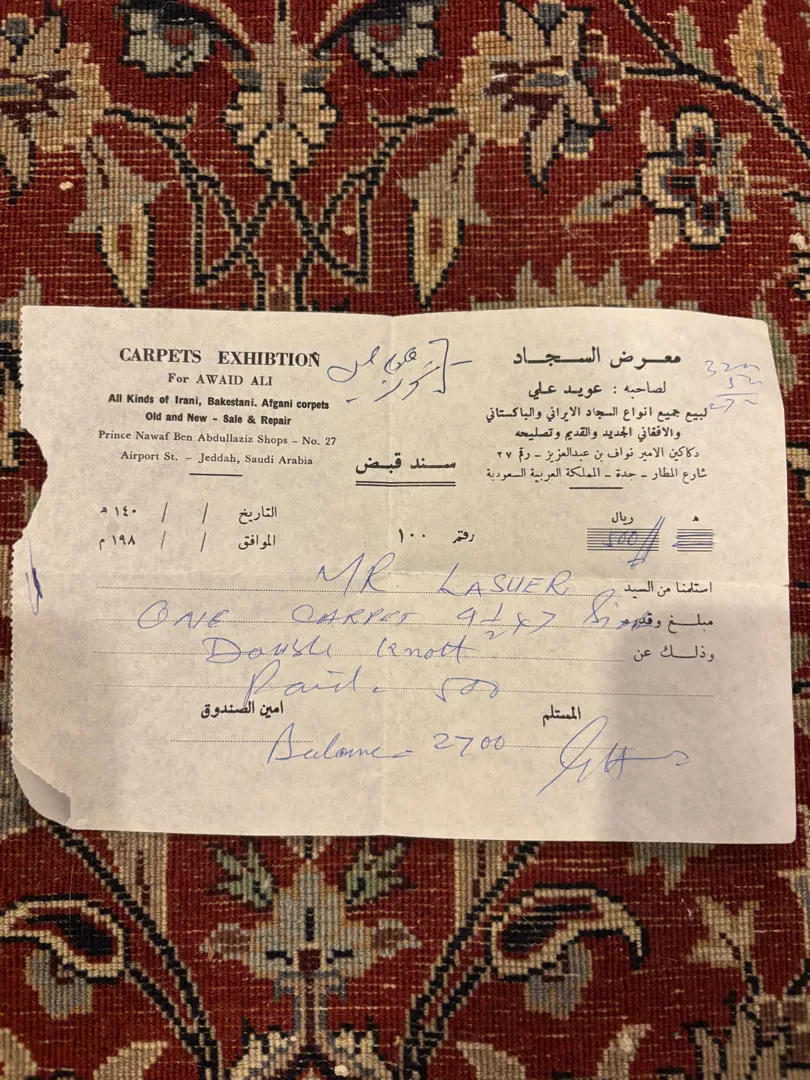 CARPETS EXHIBTION
For AWAID ALI
All Kinds of Irani, Bakestani. Afgani corpets
Old and New - Sale & Repair
Prince Nawaf Ben Abdullaziz Shops - No. 27
Airport St. - Jeddah, Saudi Arabia
معرض السجاد
لصاحبه : عويد علي
لبيع جميع انواع السجاد الايراني والباكستاني
والافغاني الجديد والقديم وتصليحه
دكاكين الامير نواف بن عبدالعزيز - رقم ٢٧
شارع المطار - جدة - المملكة العربية السعودية
سند قبض
التاريخ / / ١٤٠ هـ
الموافق / / ١٩٨ م
رقم ١٠٠
ريال ه
500
استلمنا من السيد MR. LASUER
مبلغ وقدره ONE CARPET 9 1/2 x 7
وذلك عن Double Knott
Paid - 500
المستلم امين الصندوق
Balance - 2700